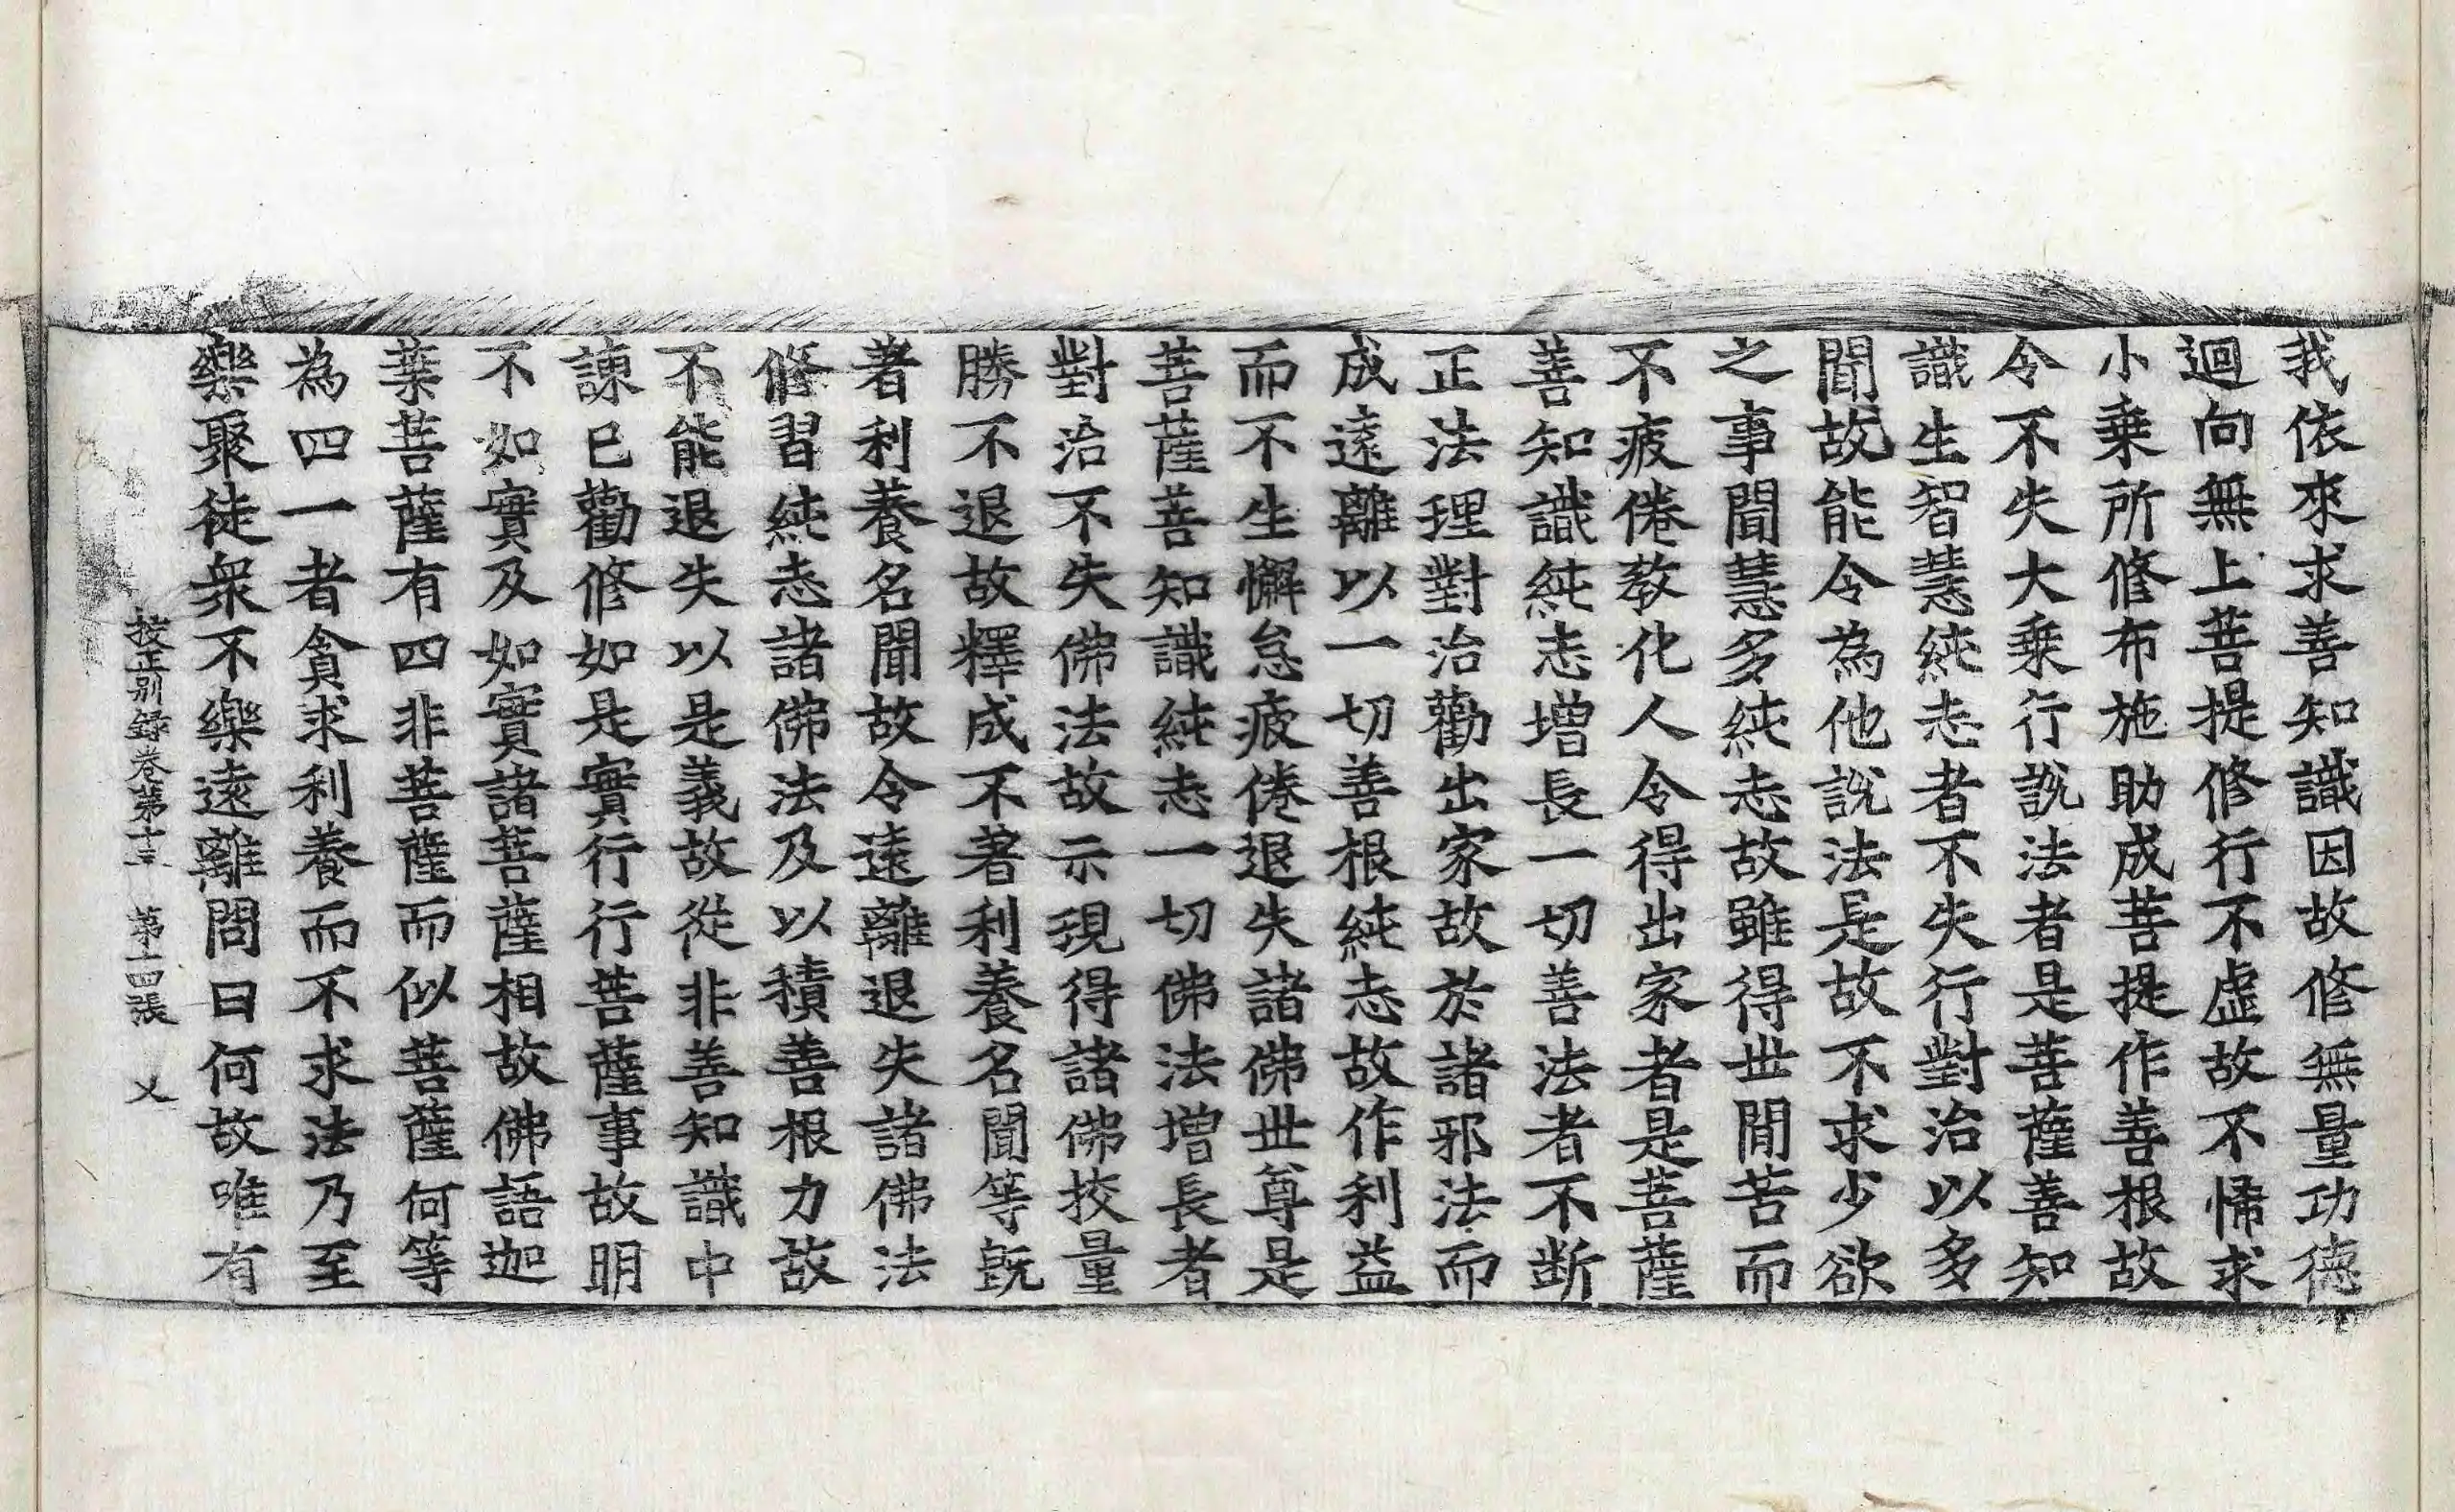 我依來求善知識因故修無量功德
迴向無上菩提修行不虛故不悕求
小乗所修布施助成菩提作善根故
令不失大乗行說法者是菩薩善知
識生智慧純志者不失行對治以多
聞故能令為他說法是故不求少欲
之事聞慧多純志故雖得世閒苦而
不疲倦敎化人令得出家者是菩薩
善知識純志增長一切善法者不断
正法理對治勸出家故於諸邪法而
成遠離以一切善根純志故作利益
而不生懈怠疲倦退失諸佛世尊是
菩薩善知識純志一切佛法增長者
對治不失佛法故示現得諸佛挍量
勝不退故釋成不著利養名聞等旣
著利養名聞故令遠離退失諸佛法
修習純志諸佛法及以積善根力故
不能退失以是義故從非善知識中
諫已勸修如是實行行菩薩事故明
不如實及如實諸菩薩相故佛語迦
葉菩薩有四非菩薩而似菩薩何等
為四一者貪求利養而不求法乃至
樂聚徒衆不樂遠離問曰何故唯有
挍正别録卷第十三 第十四張 乂